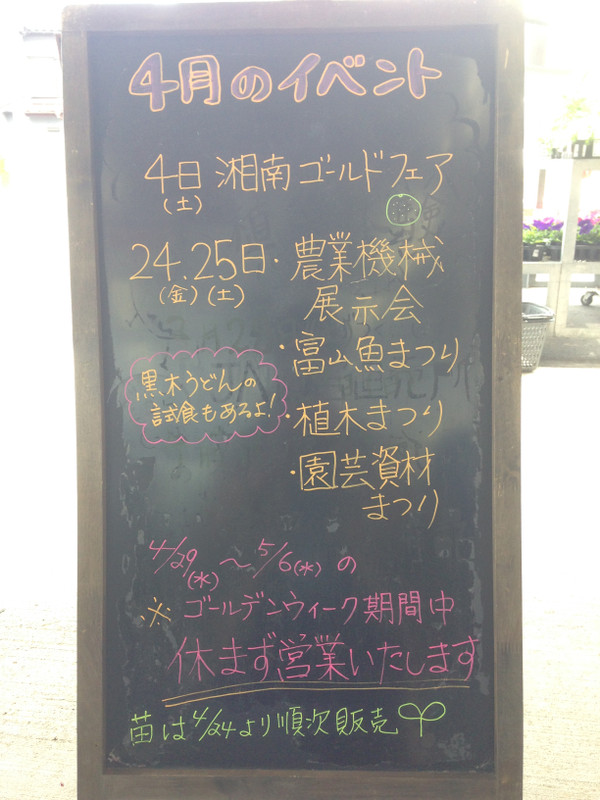 4月のイベント
4日 湘南ゴールドフェア
(土)
24.25日・農業機械
(金)(土) 展示会
・富山魚まつり
黒木うどんの
試食もあるよ!
・植木まつり
・園芸資材
まつり
4/29(水)〜5/6(水)の
※ ゴールデンウィーク期間中
休まず営業いたします
苗は4/24より順次販売